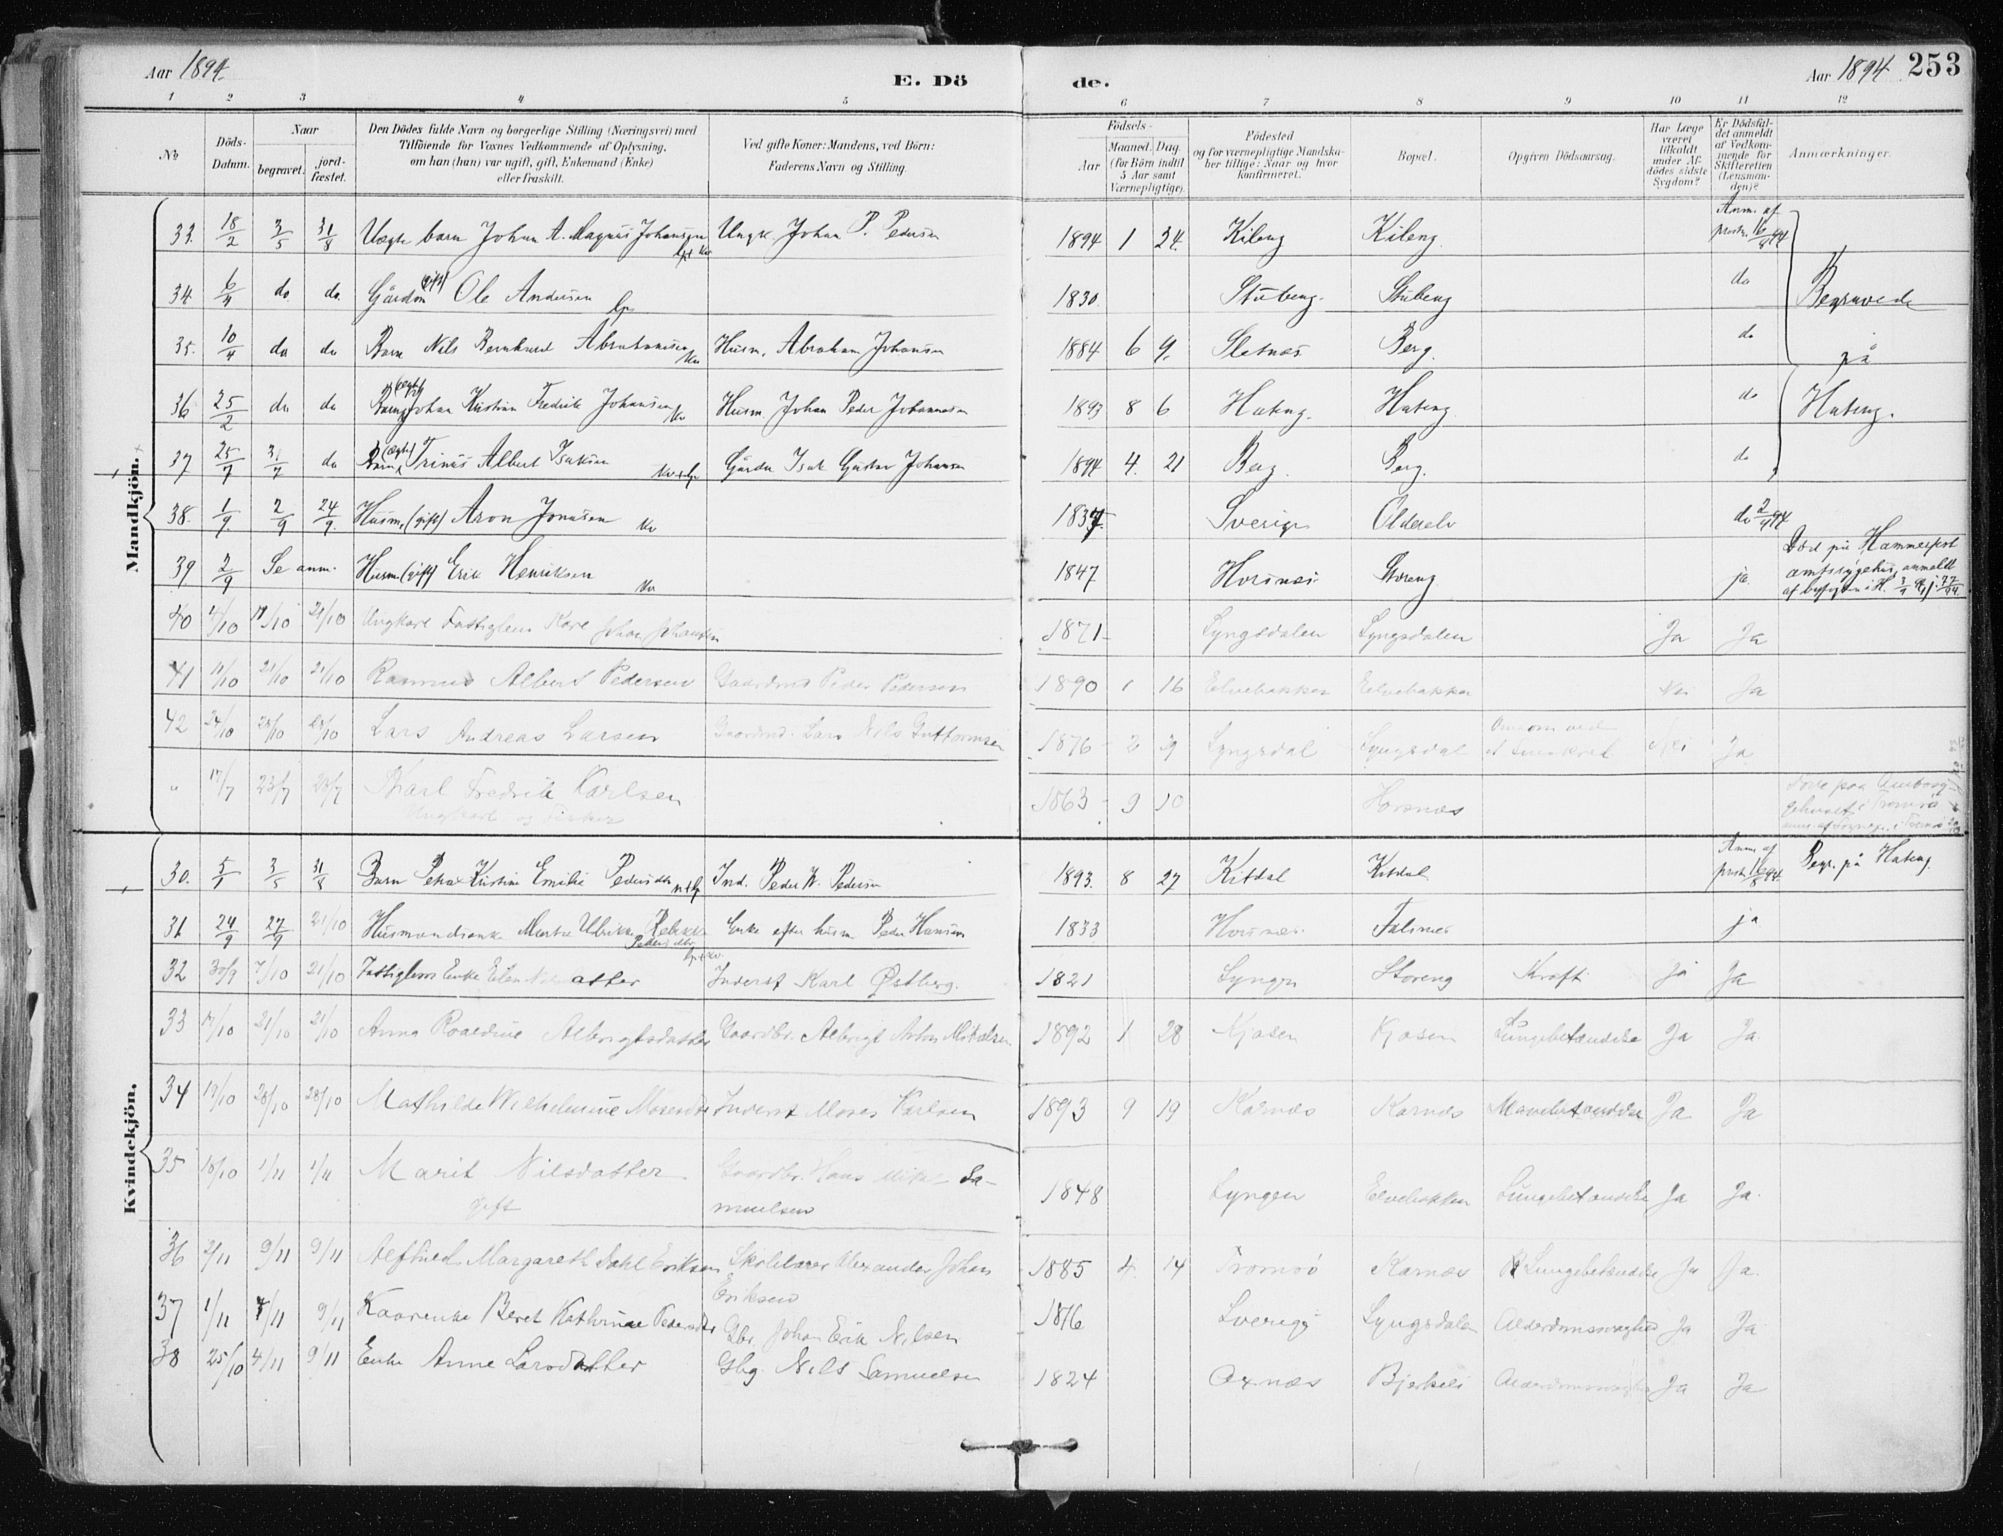 Aar 1894. E. Döde. Aar 1894. 253
1 2 3 4 5 6 7 8 9 10 11 12
No
Döds-Datum.
Naar
begravet.
jordfæstet.
Den Dödes fulde Navn og borgerlige Stilling (Næringsvei) med
Tilföiende for Voxnes Vedkommende af Oplysning,
om han (hun) var ugift, gift, Enkemand (Enke)
eller fraskilt.
Ved gifte Koner: Mandens, ved Börn:
Faderens Navn og Stilling.
Födsels-
Aar
Maaned. Dag.
(for Börn indtil
5 Aar samt
Værnepligtige).
Födested
og for værnepligtige Mandska-
ber tillige: Naar og hvor
konfirmeret.
Bopæl.
Opgiven Dödsaarsag.
Har Læge
været
tilkaldt
under Af-
dödes sidste
Sygdom?
Er Dödsfal-
det anmeldt
af Vedkom-
mende for
Skifteretten
(Lensman-
den)?
Anmærkninger.
Mandkjön.
33. 18/2 3/5 31/8 Uægte barn Johan A. Magnus Johansen Ungk. Johan P. Pedersen 1894 1 24. Kileng Kileng. Anm. af
34 6/4 do do. Gårdm (gift) Ole Andersen 1830. Stubeng. Stubeng do Begravede
35. 10/4 do do Barn Nils Bernhard Abrahamsen Husm. Abraham Johansen 1884 6 9. Sletnæs Berg. do på
36 25/2 do do Barn (ægte) Johan Kristian Fredrik Johansen Husm Johan Peder Johannesen 1893 8 6 Hateng. Hateng do Hateng.
37 25/7 31/7 do Barn (ægte) Trinus Albert Isaksen Gårdm Isak Gustav Johansen 1894 4. 21 Berg. Berg. do
38. 1/9. 2/9 24/9. Husm. (gift) Aron Jonassen 1837. Sverige Olderelv do 2/9 94
39 2/9 Se anm. Husm (gift) Erik Henriksen 1847 Horsnæs Storeng ja. Död på Hammerfest
amtssygehus, anmeldt
40 21/10 Ungkarl Fattiglem Kare Johan Johansen 1871 Lyngsdalen Lyngsdalen Ja Ja
41 11/10 21/10 21/10 Rasmus Albert Pedersen Gaardmd Peder Pedersen 1890 1 16 Elvebakken Elvebakken Nei Ja
42 24/10 28/10 28/10 Lars Andreas Larsen Gaardmd. Lars Nils Guttormsen 1876 2 9 Lyngsdal Lyngsdal Nei Ja
" 17/7 23/7 23/7 Karl Fredrik Karlsen 1863 9 10 Horsnæs
Ungkarl og Fisker
Kvindekjön.
30. 3/5 31/8 Barn Petra Kristine Emilie Pedersdtr Ind. Peder W. Pedersen 1893. 8 27 Kitdal Kitdal Anm. af Begr. på Hateng.
31 24/9 27/9 21/10 Husmandsenke Marta Ulrikke Rebekka Pedersdtr Enke efter husm Peder Hansen 1833 Horsnæs Falsnes ja
32 30/9 7/10 21/10 Fattiglem Enke Elen Nilsdatter Inderst Karl Østberg. 1821 Lyngen Storeng Kræft Ja Ja
33 17/10 21/10 21/10 Anna Roaldine Albrigtsdatter Gaardbr. Albrigt Anton Mikalsen 1892 1 28 Kjosen Kjosen Lungebetændelse Ja Ja
34 19/10 28/10 28/10 Mathilde Wilhelmine Mosesdtr Inderst Moses Karlsen 1893 9 19 Karnæs Karnæs Mavebetændelse Ja Ja
35 18/10 1/11 1/11 Marit Nilsdatter Gaardbr. Hans Mikal Sa-
gift muelsen 1848 Lyngen Elvebakken Lungebetændelse Ja Ja.
36 2/11 9/11 9/11 Alfhild Margareth Dahl Eriksen Skolelærer Alexander Johan
Eriksen 1885 4. 14 Tromsø Karnæs Lungebetændelse Ja Ja.
37 1/11 4/11 9/11 Kaarenke Beret Kathrine Pedersdtr Gbr. Johan Erik Nilsen 1816 Sverige Lyngsdalen Alderdomssvaghed Ja Ja
38 25/10 4/11 9/11 Enke Anne Larsdatter Gbg. Nils Samuelsen 1824 Oxnæs Bjerkeli Alderdomssvaghed Ja Ja